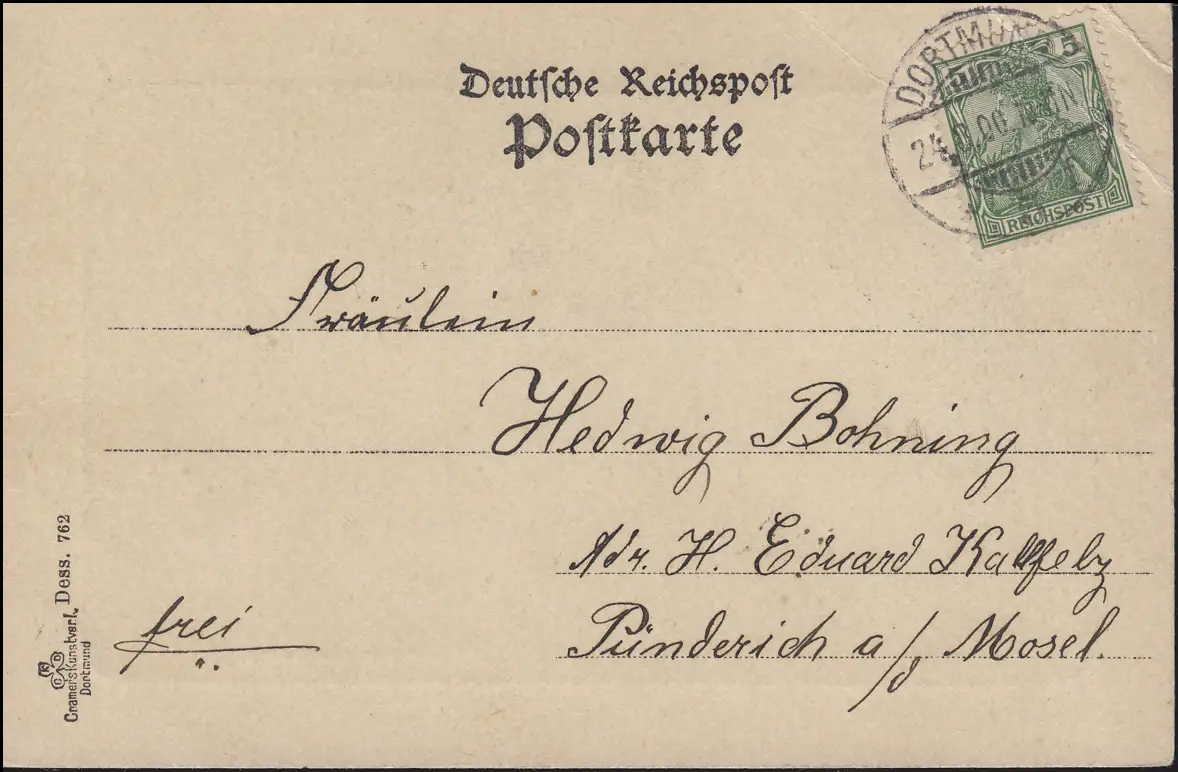 Deutsche Reichspost
Postkarte
DORTMUND
24.9.00.
5
REICHSPOST
Fräulein
Hedwig Bohning
Adr. H. Eduard Kallfelz
Pünderich a/d Mosel.
frei
Cramers Kunstverl. Dess. 762
Dortmund